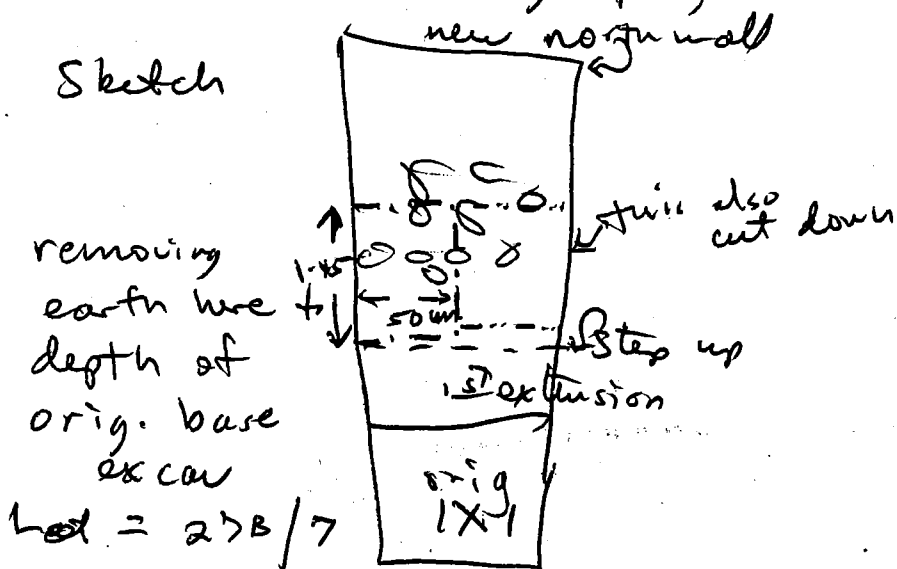 new north wall
Sketch
this also
cut down
removing
earth here to
depth of
orig. base
excav
Lot = 27B/7
1.45
50 cm
Step up
1st extension
orig
1X1